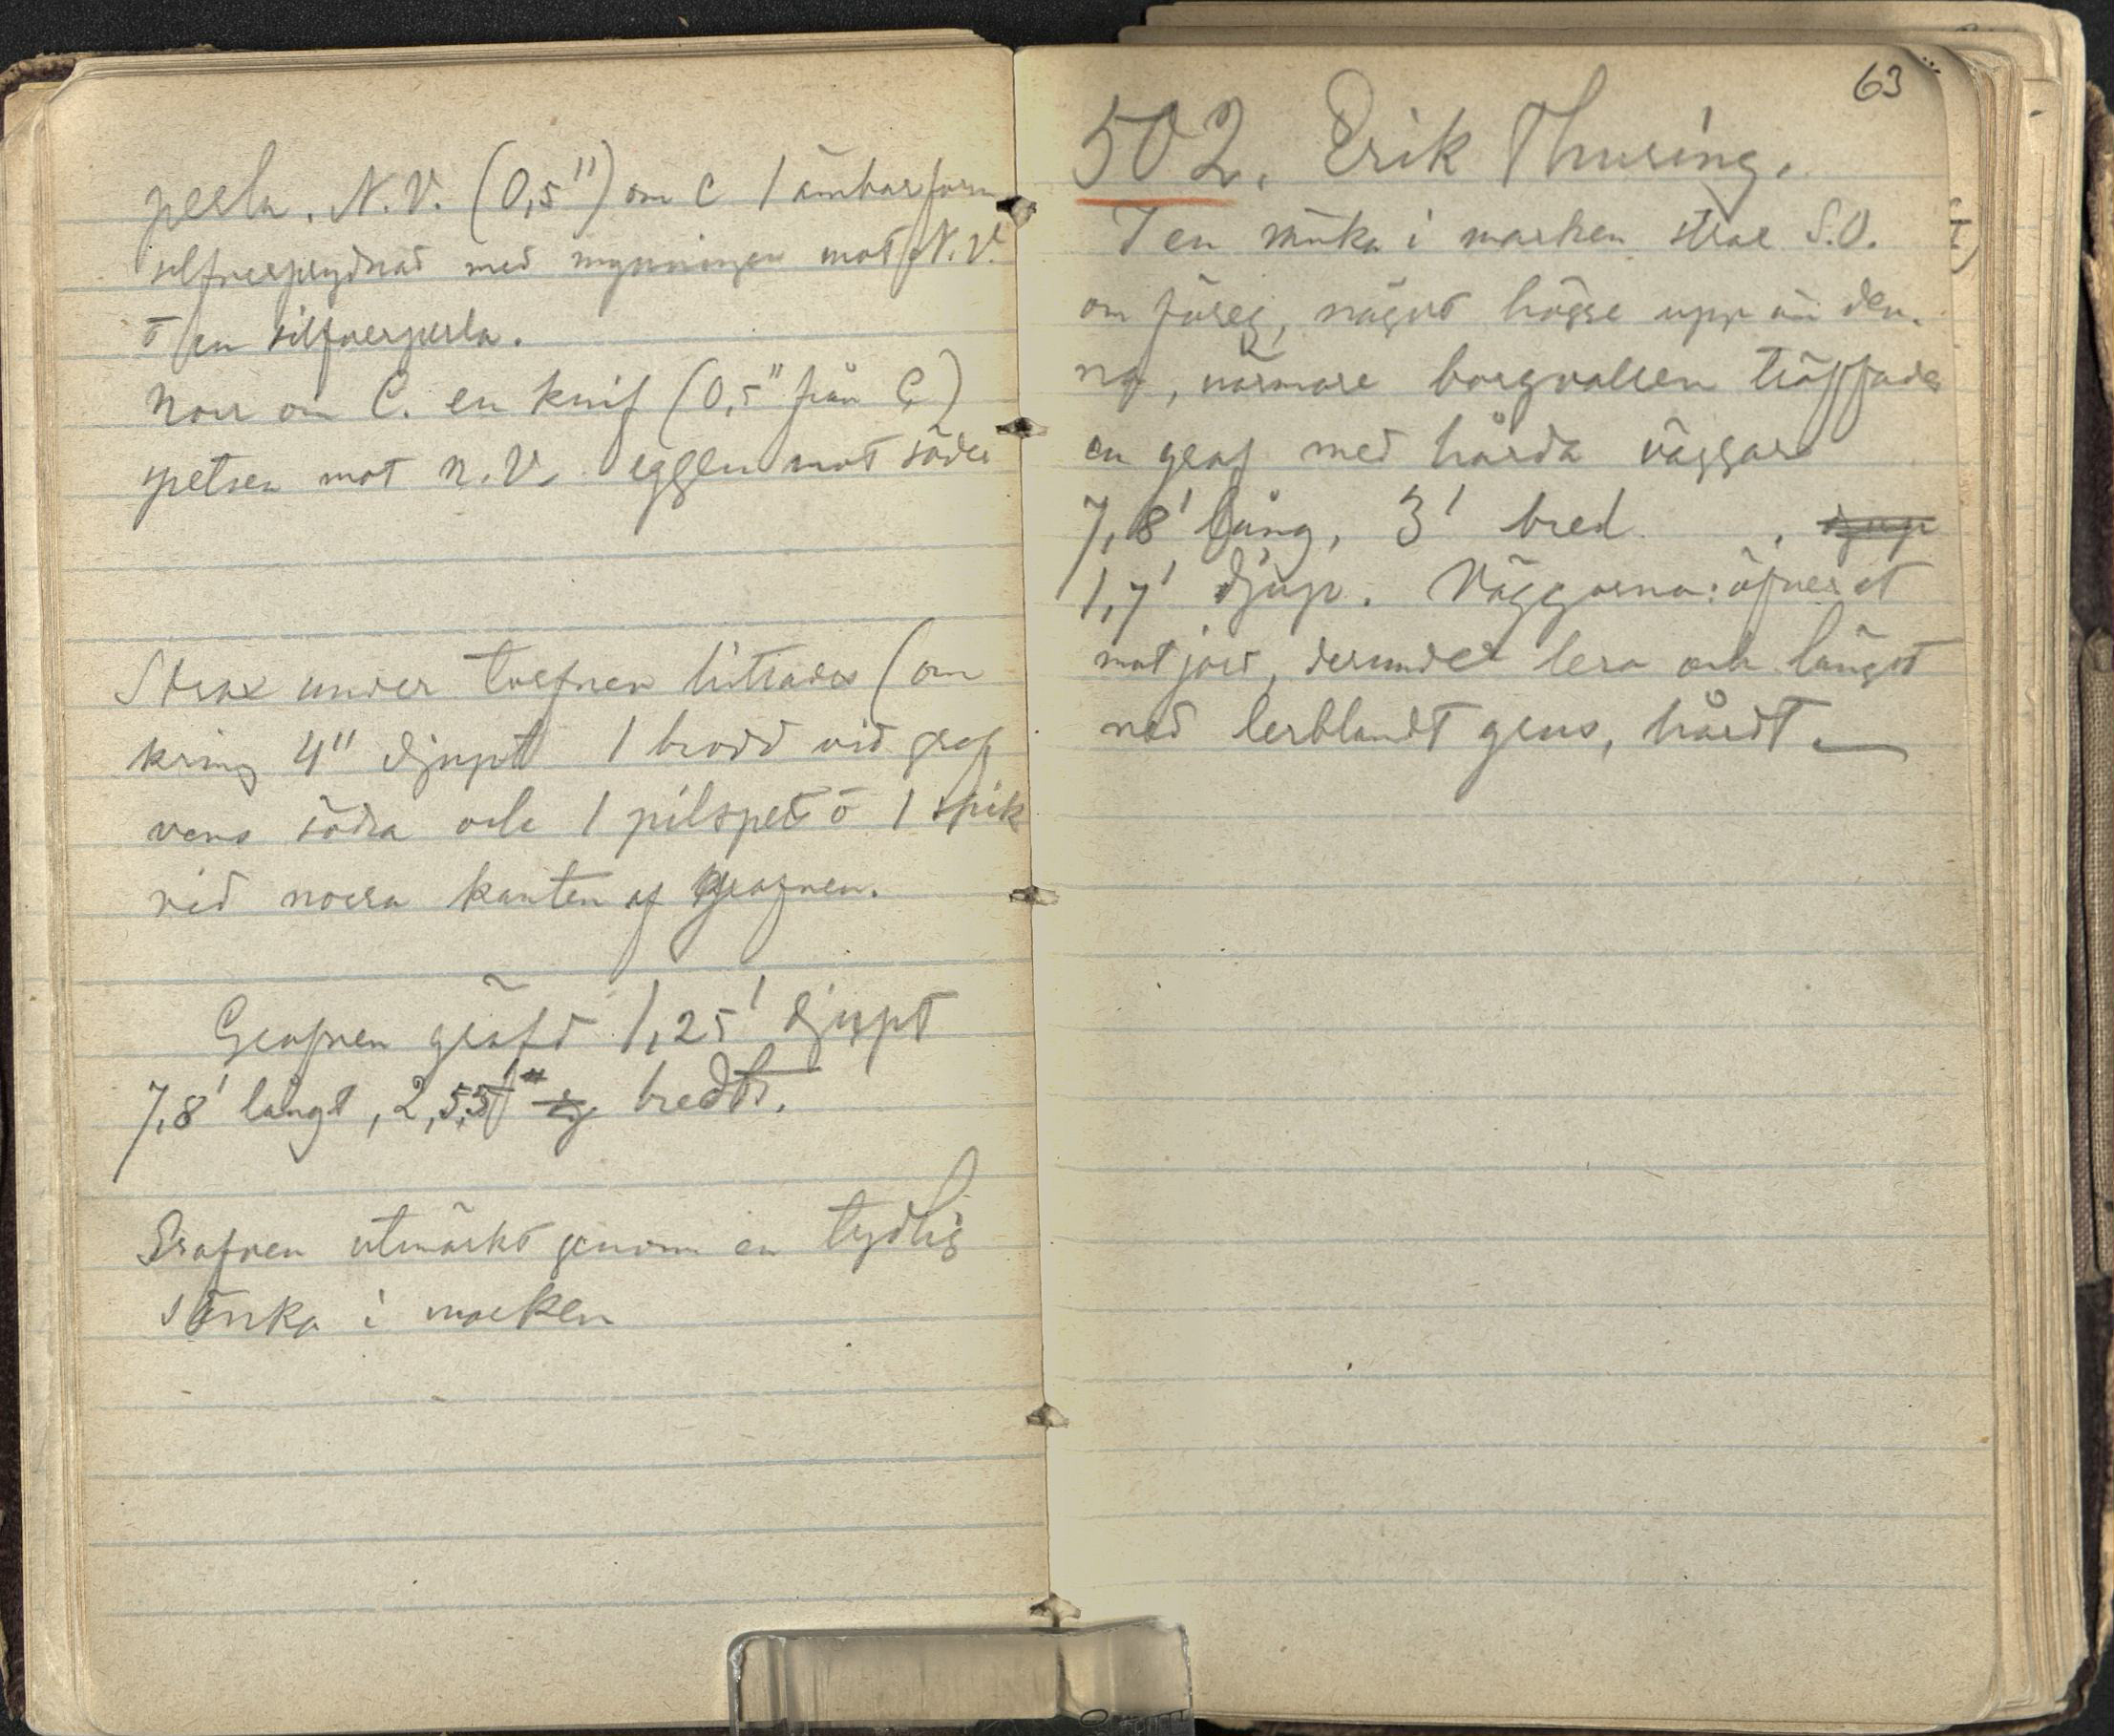 perla. N.V. (0,5") om C 1 ämbarform
silfverprydnad med mynningen mot N.V.
o en silfverperla.
Norr om C. en knif (0,5" från C)
spetsen mot N.V. eggen mot söder
Strax under torfven hittades (om
kring 4" djupt 1 brodd vid graf
vens södra och 1 pilspets o 1 spik
vid norra kanten af grafven.
Grafven gräfd 1,25' djupt
7,8' långt, 2,55' bredt.
Grafven utmärkt genom en tydlig
sänka i marken
63
502. Erik Thuring.
I en sänka i marken strax S.O.
om föreg, något högre upp än den.
na, närmare borgvallen träffades
en graf med hårda väggar
7,8' lång, 3' bred , djup
1,7' djup. Väggarna: öfverst
matjord, derunder lera och längst
ned lerblandt grus, hårdt.